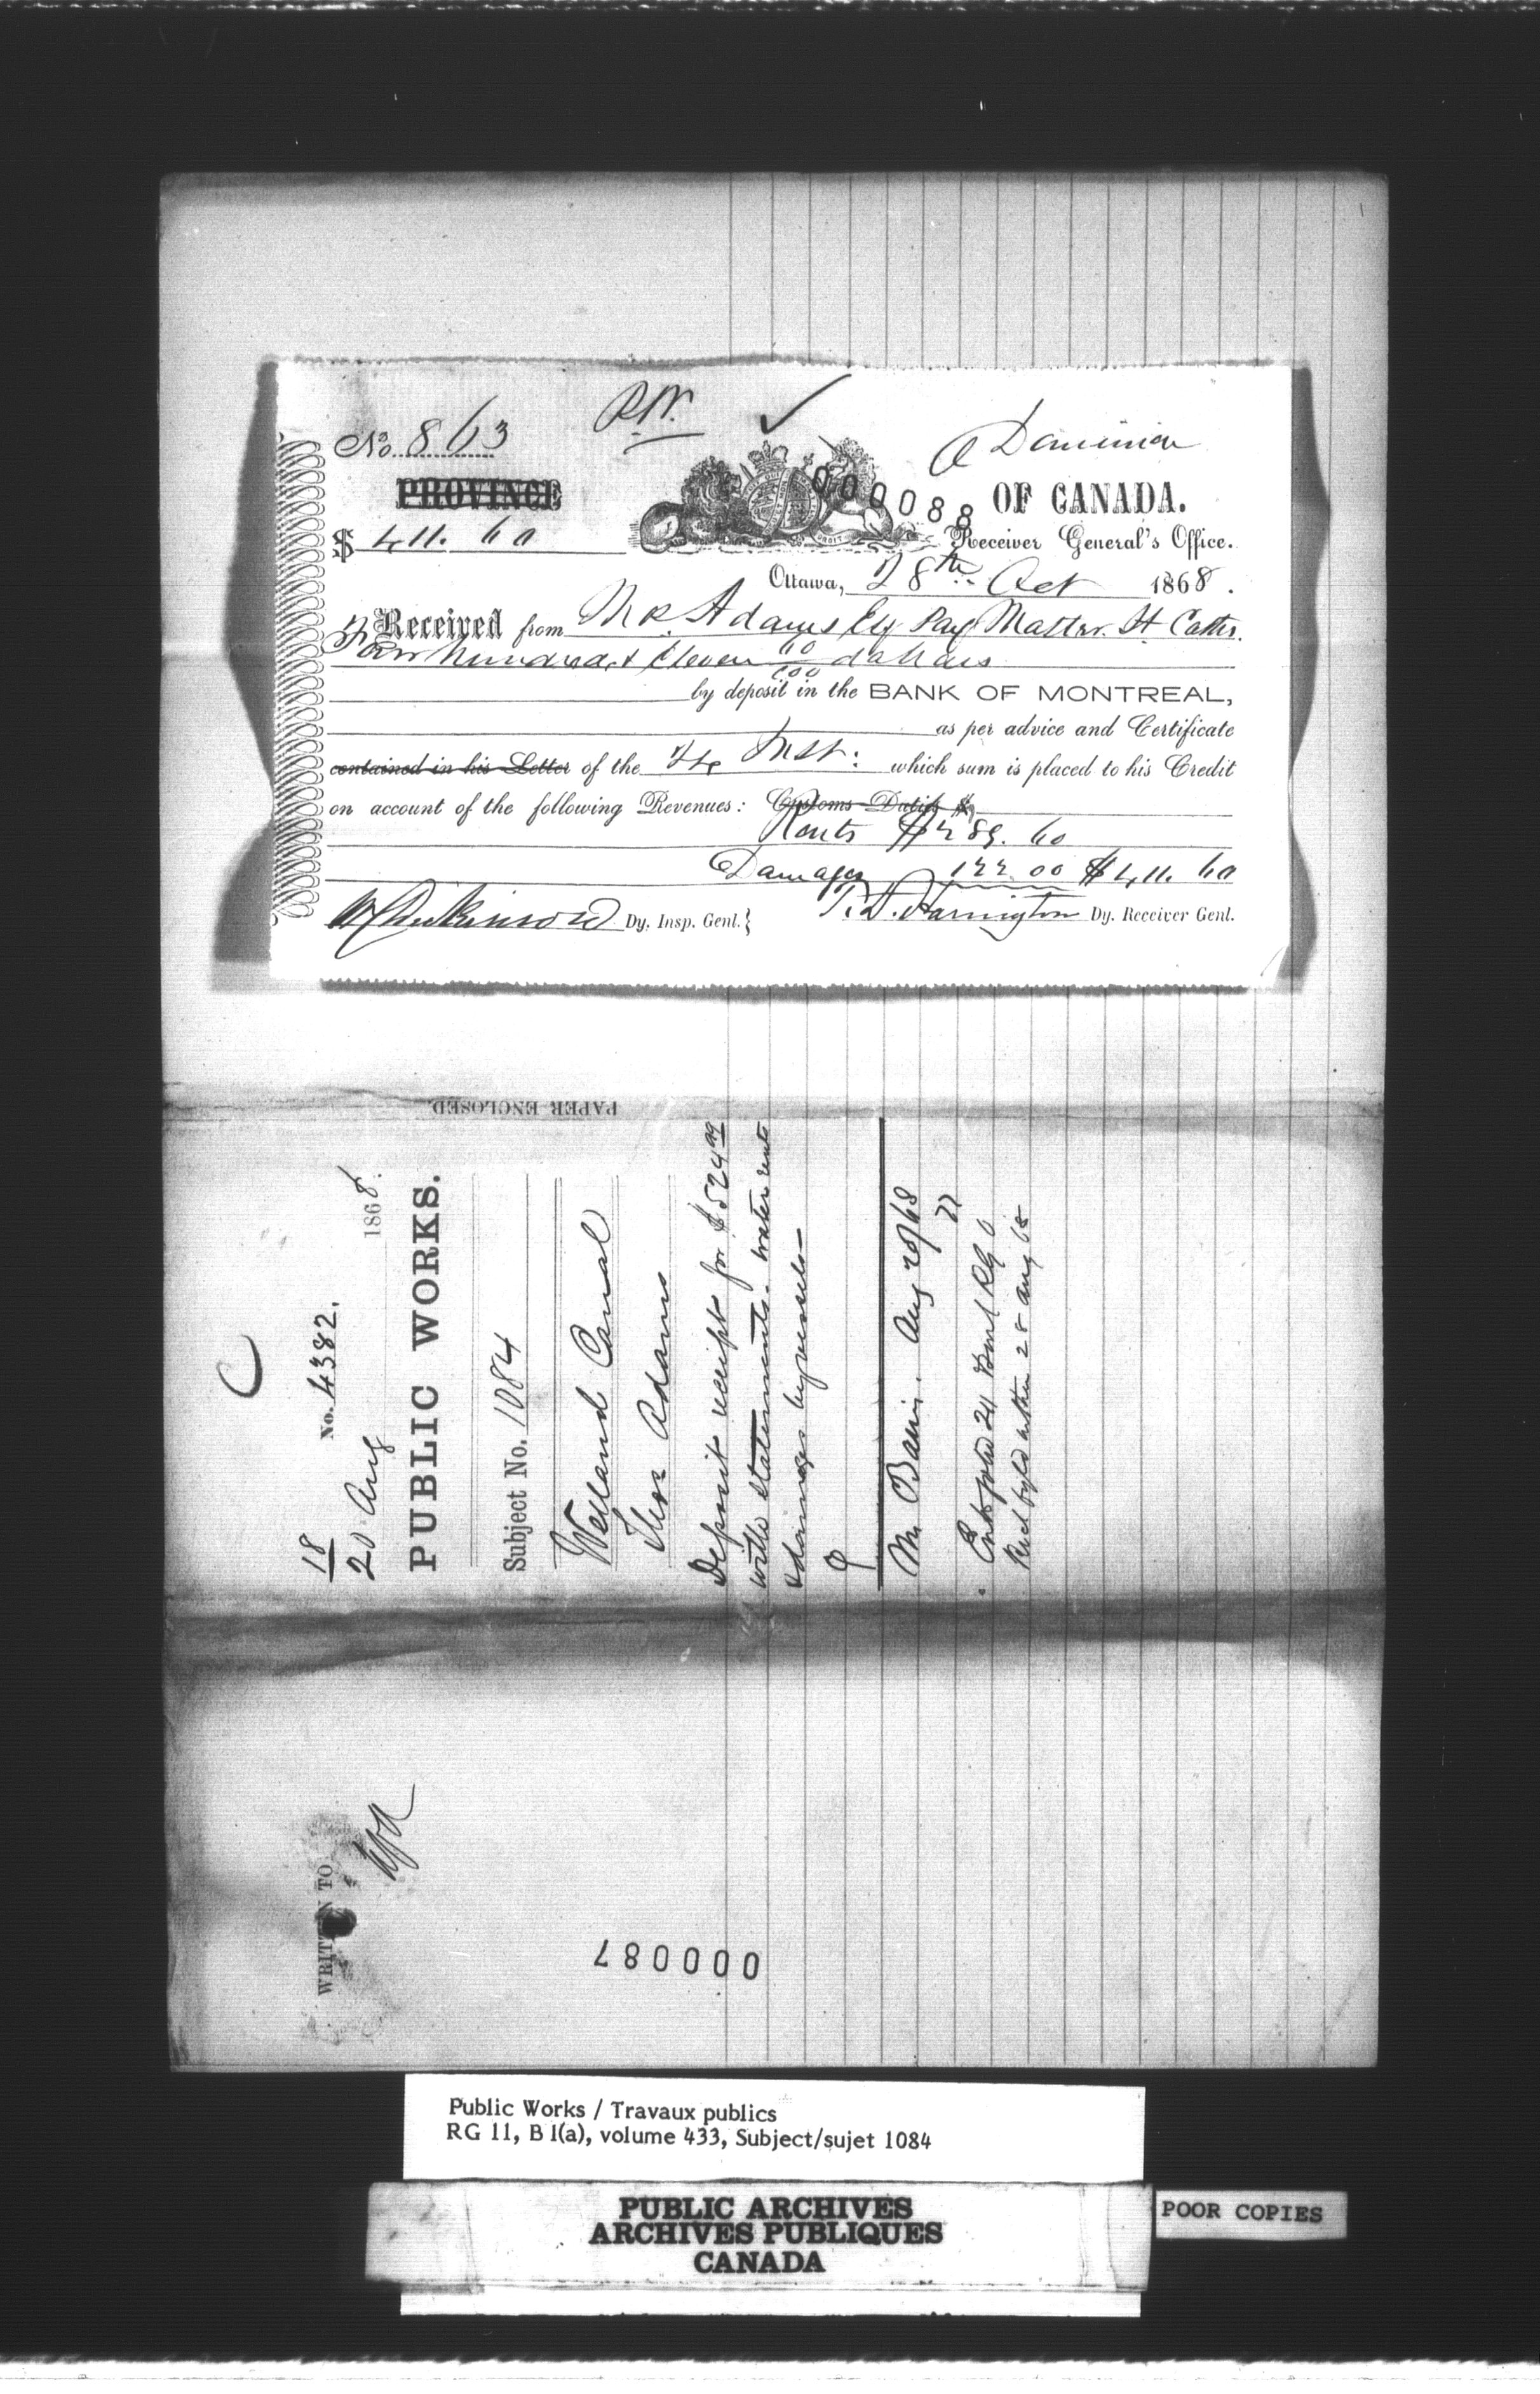 P.W.
No. 863
Dominion
PROVINCE
000088
OF CANADA.
$ 411. 60
Receiver General's Office.
Ottawa, 28th Oct 1868.
Received from Adams Esq Pay Master. St Caths.
Four hundred & Eleven 60/100 dollars
by deposit in the BANK OF MONTREAL,
as per advice and Certificate
contained in his Letter of the Inst: which sum is placed to his Credit
on account of the following Revenues: Customs Duties $
Rents $289. 60
Damages 122 00 $411. 60
Dy. Insp. Genl. T. D. Harrington Dy. Receiver Genl.
PAPER ENCLOSED.
C
18
No. 4382.
20 Aug 1868.
PUBLIC WORKS.
Subject No. 1084
Welland Canal
Thos Adams
Deposit receipt for $524
with statements. water rents
& damages by vessels—
Mr Bain. Aug 20/68
WRITTEN TO
000087
Public Works / Travaux publics
RG 11, B 1(a), volume 433, Subject/sujet 1084
PUBLIC ARCHIVES
ARCHIVES PUBLIQUES
CANADA
POOR COPIES